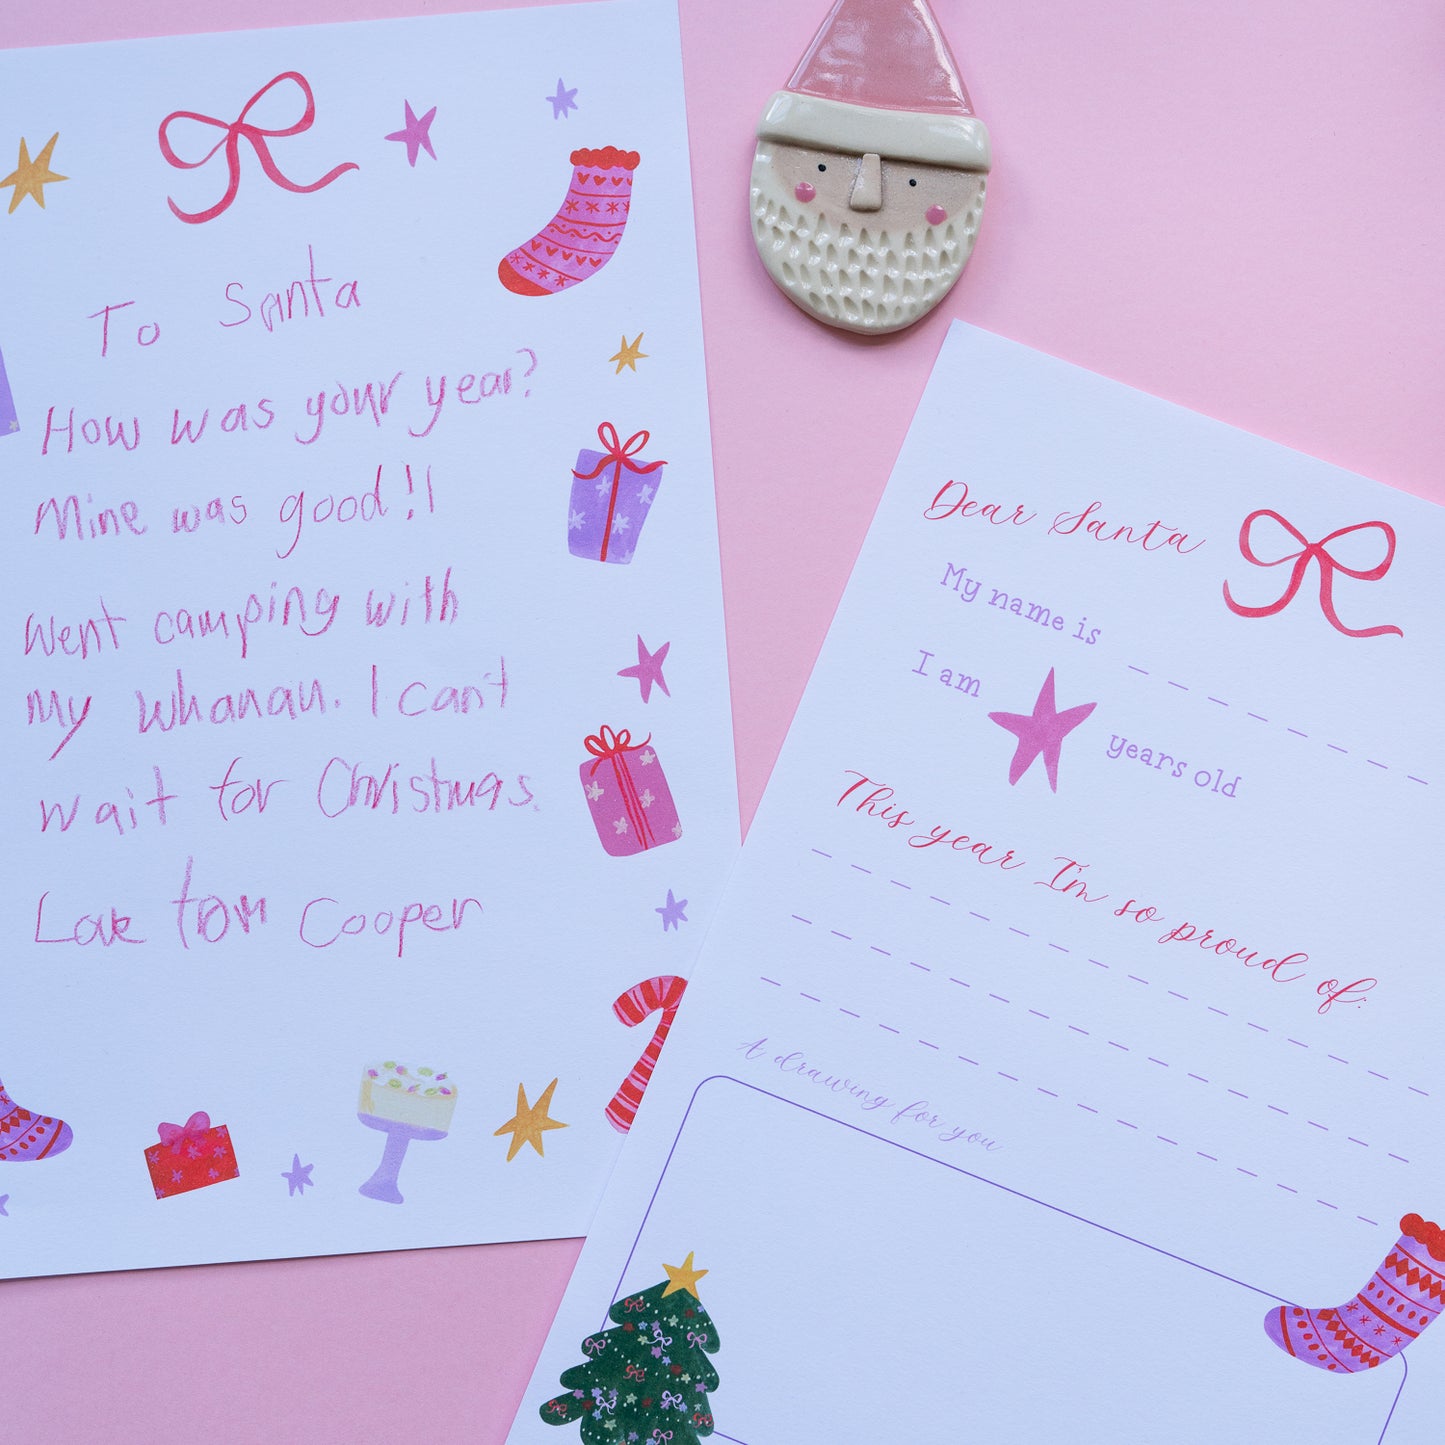 To Santa
How was your year?
Mine was good! I
Went camping with
My whanau. I can't
wait for Christmas.
Love from Cooper
Dear Santa
My name is
I am
years old
This year I'm so proud of:
A drawing for you